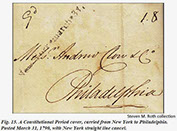 9d
1.8
Messrs. Andrew Clow & Co.
Philadelphia
Steven M. Roth collection
Fig. 15. A Constitutional Period cover, carried from New York to Philadelphia.
Posted March 31, 1790, with New York straight line cancel.